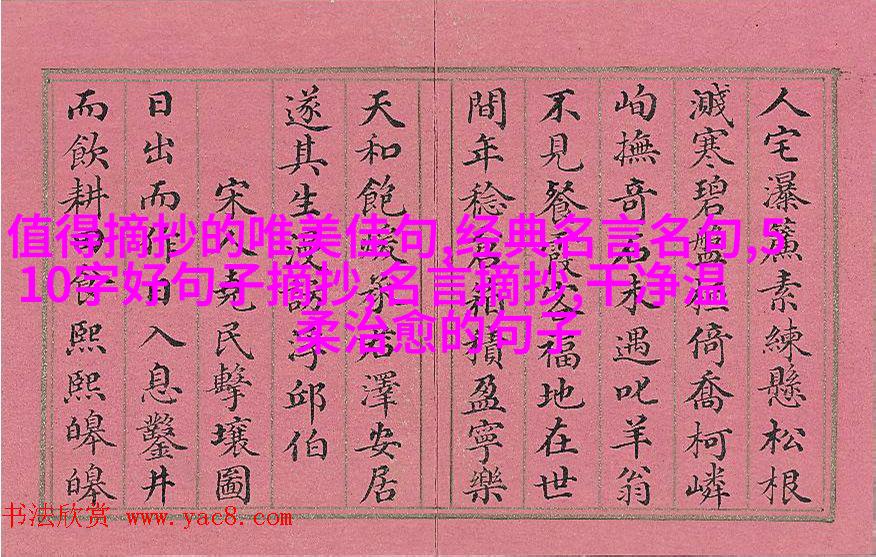 人宅瀑簾素練懸松根
濺寒碧盤倚喬柯嶙
峋撫奇石未遇叱羊翁
不見餐霞客福地在世
間年稔倉箱積盈寧樂
天和飽煖承澤安居
遂其生謾訪浮邱伯
宋人堯民擊壤圖
日出而作日入息鑿井
而飲耕田食熙熙皞皞
值得摘抄的唯美佳句,经典名言名句,5
10字好句子摘抄,名言摘抄,干净温
柔治愈的句子
书法欣赏 www.yac8.com